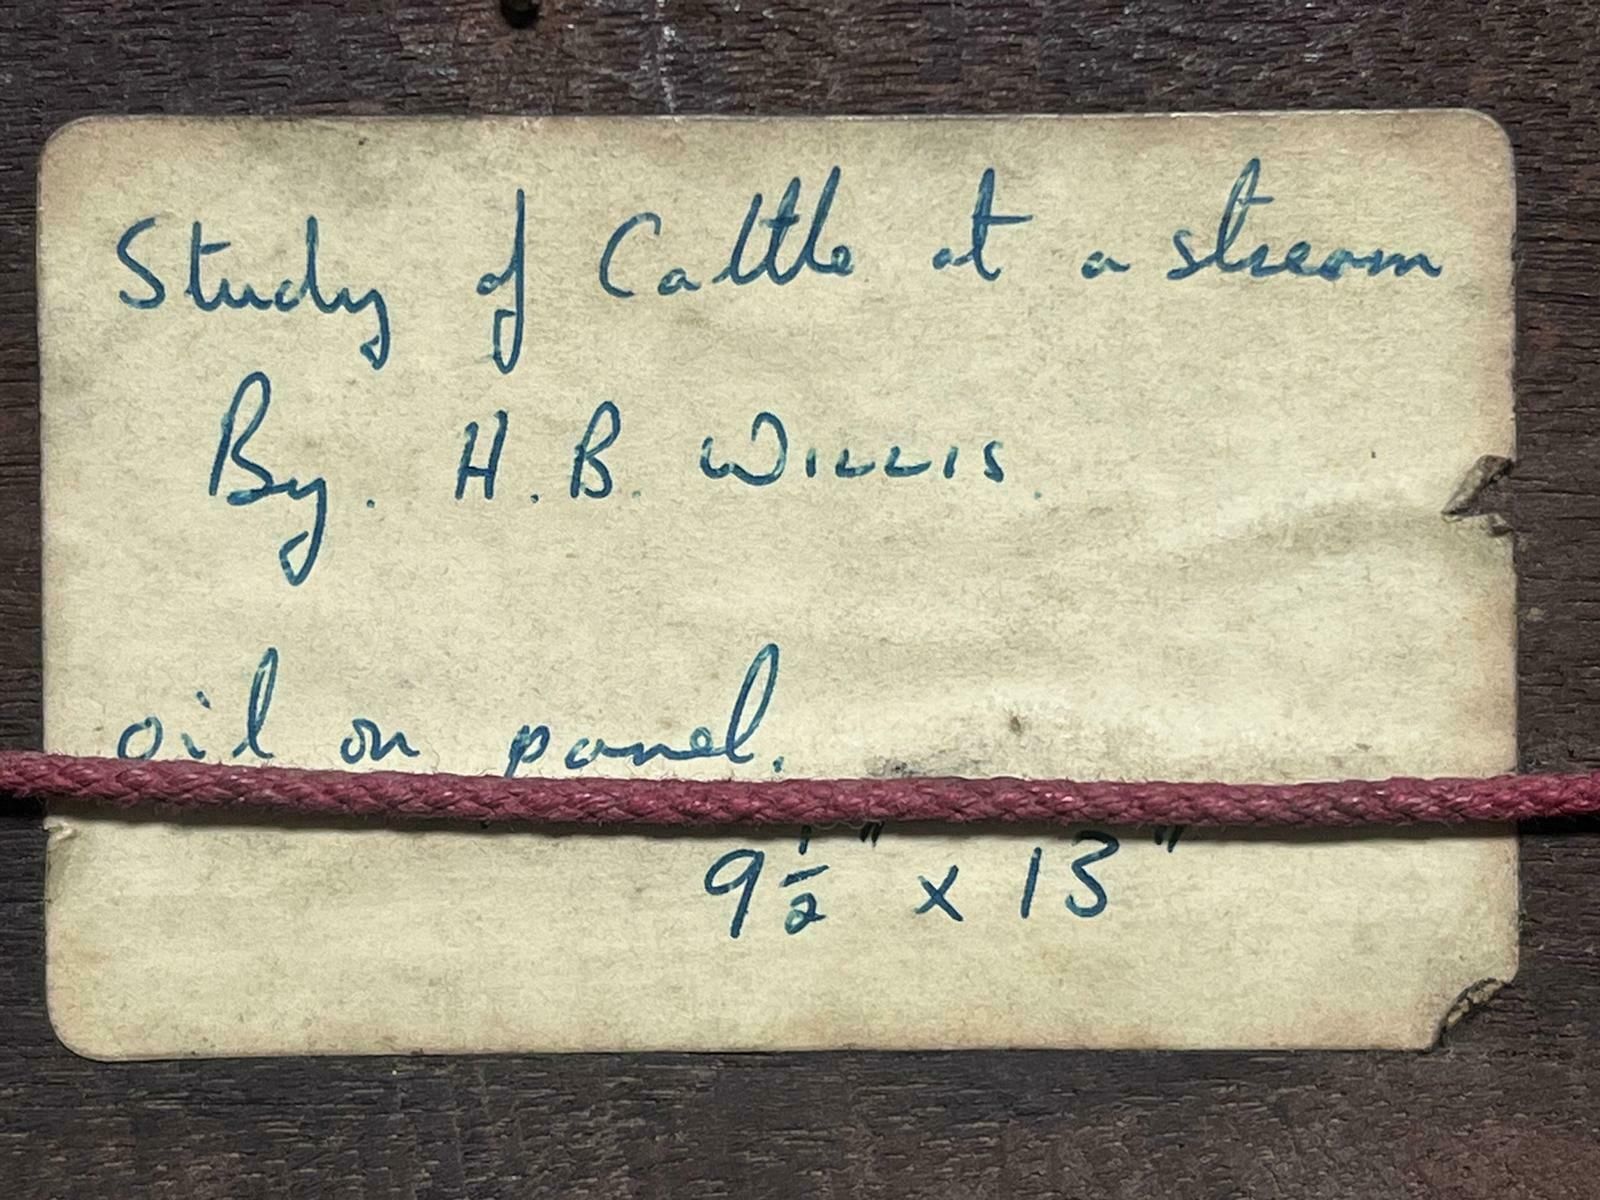 Study of Cattle at a stream
By. H. B. WILLIS.
oil on panel.
9½" x 13"